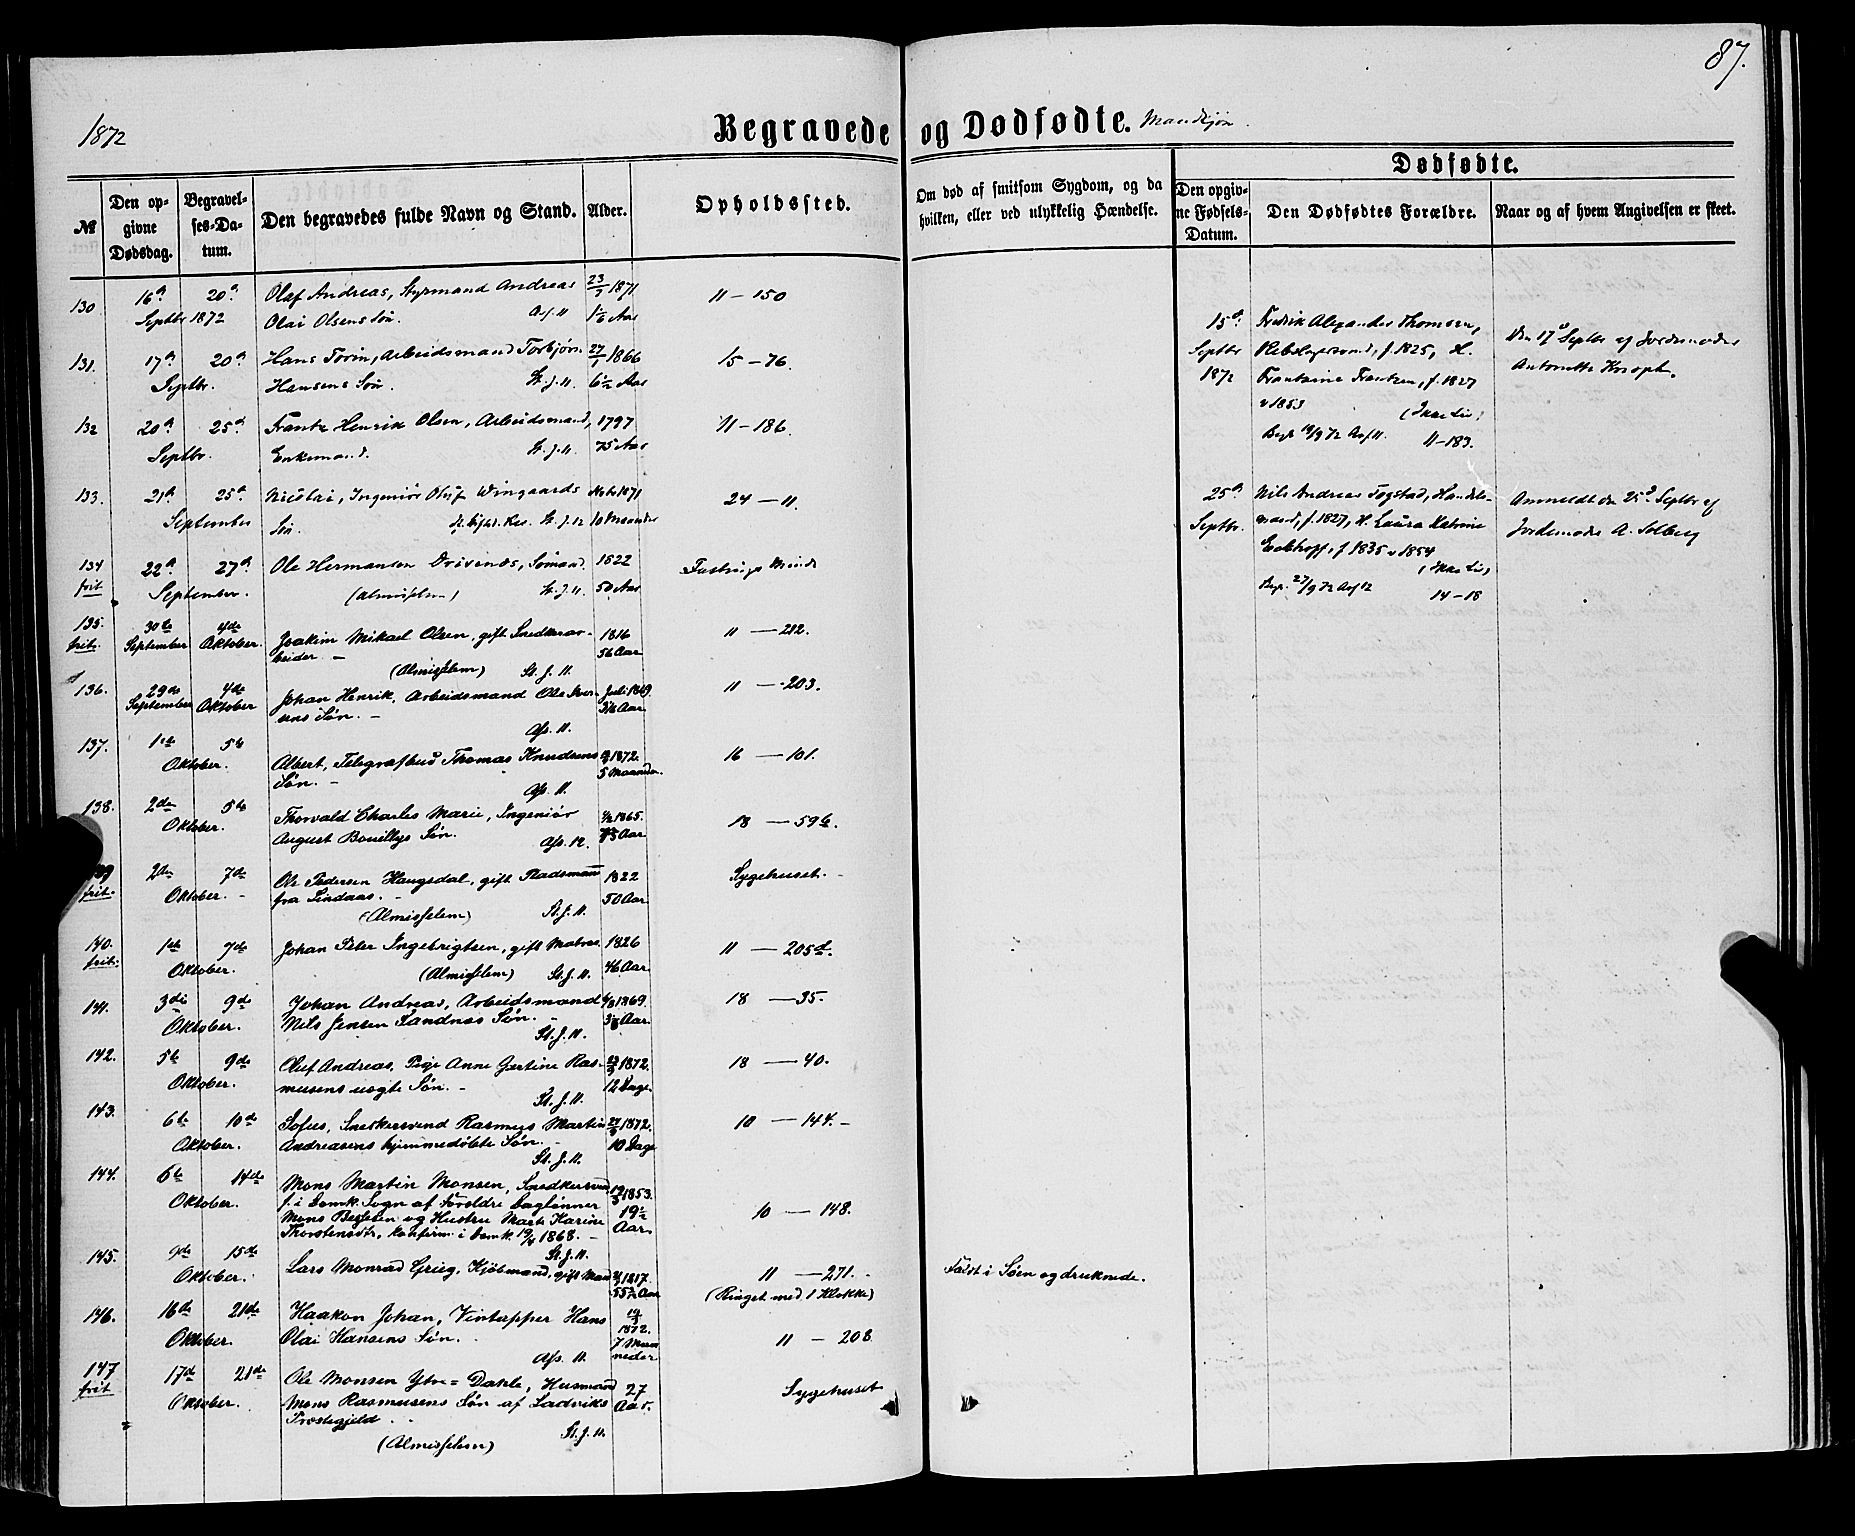 87.
1872
Begravede og Dødfødte. Mandkjøn.
Dødfødte.
№
Den opgivne Dødsdag.
Begravelses-Datum.
Den begravedes fulde Navn og Stand.
Alder.
Opholdssted.
Om død af smitsom Sygdom, og da hvilken, eller ved ulykkelig Hændelse.
Den opgivne Fødsels-Datum.
Den Dødfødtes Forældre.
Naar og af hvem Angivelsen er skeet.
130 16de 20de Olaf Andreas, Styrmand Andreas 1871 11 – 150
Septbr 1872 Olai Olsens Søn. Aar
131. 17de 20de Hans Torin, Arbeidsmand Torbjørn 1866 15 – 76.
Septbr. Hansens Søn. St. J. 11. 6½ Aar
132 20de 25de Frantz Henrik Olsen, Arbeidsmand, 1797 11 – 186.
Septbr. Enkemand. St. J. 11. 75 Aar
133. 21de 25de Nicolai, Ingeniør Oluf Wingaards 1871 24 – 11.
September Søn. 10 Maaneder
134 22de 27de Ole Hermansen Sømand. 1822
frit September. (Almisselem) St. J. 11. 50 Aar
135. 30te 4de Joakim Mikael Olsen, gift Snedkerar- 1816 11 – 212.
frit. September Oktober. beider – 56 Aar
(Almisselem) St. J. 11.
136. 29de 4de Johan Henrik, Arbeidsmand Ole Iver- Juli 1869. 11 – 203.
September Oktober sens Søn. – Aar
Ass. 11.
137. 1ste 5te Albert, Telegrafbud Thomas Knudsens 1872. 16 – 101.
Oktober. Søn. – 5 Maaneder.
Ass. 11.
138. 2den 5te Thorvald Charles Marie, Ingeniør 1865. 18 – 59b.
Oktober. August Bouillys Søn. Ass. 12. Aar
2den 7de Ole Pedersen Haugsdal, gift Pladsmand 1822 Sygehuset. –
frit. Oktober. – fra Lindaas. – 50 Aar
(Almisselem) St. J. 11.
140. 1ste 7de Johan Peter Ingebrigtsen, gift Matros 1826 11 – 205d.
frit: Oktober. (Almisselem) St. J. 11. 46 Aar.
141. 3die 9de Johan Andreas, Arbeidsmand 1869. 18 – 35.
Oktober. Nils Jensen Sandnæs Søn. – Aar.
St. J. 11.
142. 5te 9de Oluf Andreas, Pige Anne Gjertine Ras- 1872. 18 – 40.
Oktober. musens uægte Søn. – 12 Dage.
St. J. 11.
143. 6te 10de Sofus, Snedkersvend Rasmus Martin 1872. 10 – 144. –
Oktober. Andreasens hjemmedøbte Søn. – 10 Dage
St. J. 11.
144. 6te 14de Mons Martin Monsen, Snedkersvend 1853. 10 – 148.
Oktober. f. i Domk. Sogn af Foreldre Daglønner 19½
Mons Besseen og Hustru Marte Karine Aar.
Thorstensdtr, konfirm. i Domk. 19/4 1868. –
St. J. 11.
145. 9de 15de Lars Monrad Grieg, Kjøbmand, gift Mand 1817. 11 – 271. – Faldt i Søen og druknede.
Oktober. 55½ Aar (Ringet med 1 Klokke)
146. 16de 21de Haakon Johan, Vintapper Hans 19/3 1872. 11 – 208
Oktober. Olai Hansens Søn. 7 Maaneder
Ass. 11.
147 17de 21de Ole Monsen Ytre-Dahle, Husmand 27 Sygehuset
frit Oktober. Mons Rasmusens Søn af Ladviks Aar.
Præstegjeld.
(Almisselem) St. J. 11.
15de Fredrik Alexander Thomsen, Den 17de Septbr af Jordemoder
Septbr Rebslagersvend, f. 1825, H. Antonette Knoph.
1872 Frantzine Frantzen, f. 1827
v 1853 (Ikke Liv)
Begr 19/9 72 Ass 11. 11–183.
25de Nils Andreas Fogstad, Handels- Anmeldt den 25de Septbr af
Septbr. mand, f. 1827, H. Laura Katrine Jordemoder A. Solberg
f 1835 v 1854
(Ikke Liv)
Begr. 27/9 72 Ass 12 14–18